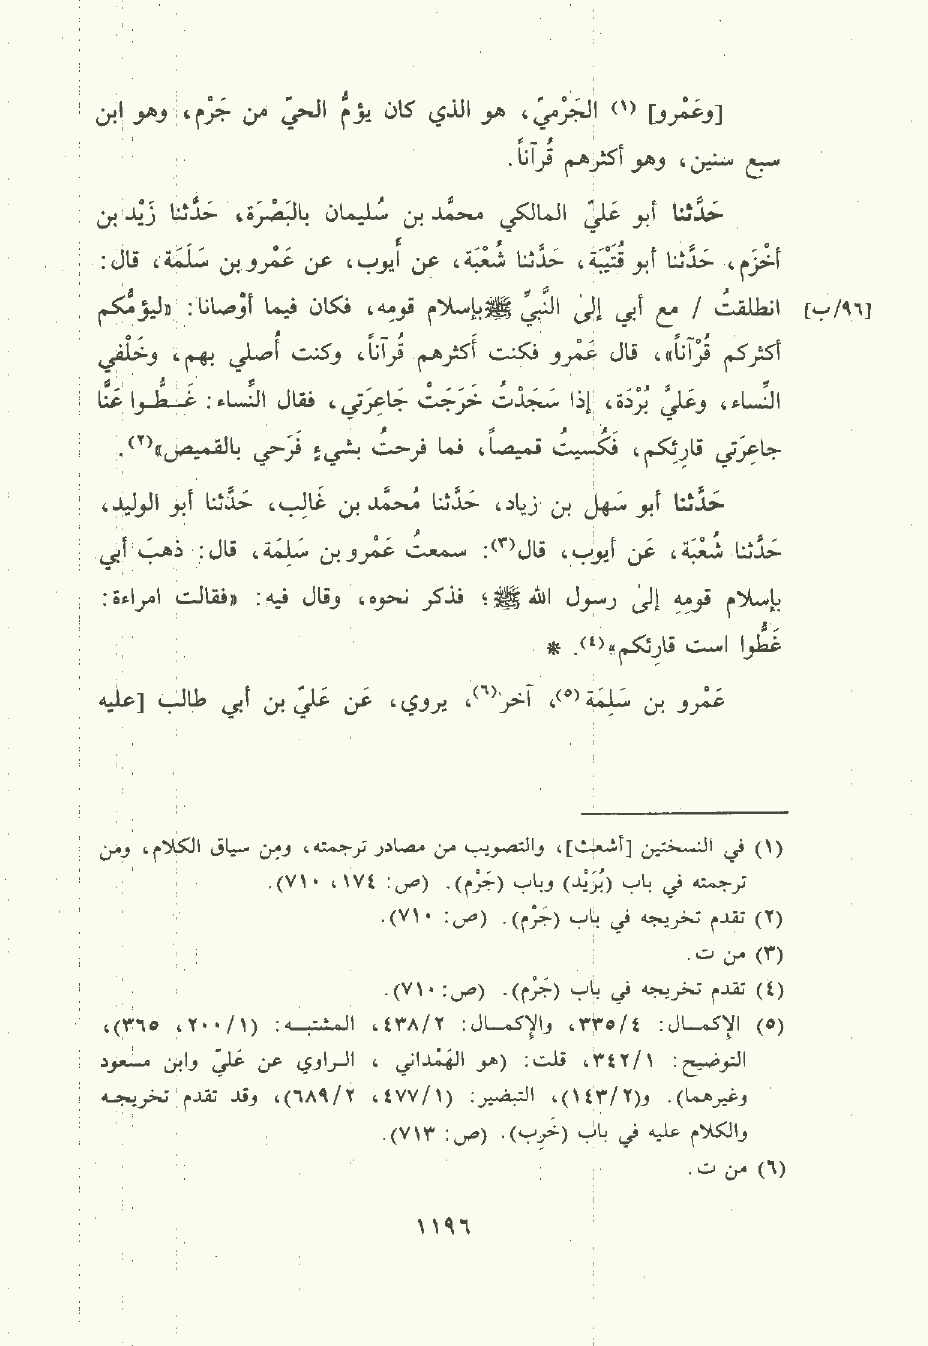 [وعَمْرو] (١) الجَرْميّ، هو الذي كان يؤمُّ الحيّ من جَرْم، وهو ابن
سبع سنين، وهو أكثرهم قُرآناً.
حَدَّثنا أبو عَليّ المالكي محمَّد بن سُليمان بالبَصْرَة، حَدَّثنا زَيْد بن
أخْزَم، حَدَّثنا أبو قُتَيْبَة، حَدَّثنا شُعْبَة، عن أَيوب، عن عَمْرو بن سَلَمَة، قال:
[٩٦/ب] انطلقتُ / مع أبي إلىٰ النَّبيِّ ﷺ بإسلام قومِه، فكان فيما أوْصانا: «ليؤمُّكم
أكثركم قُرْآناً»، قال عَمْرو فكنت أَكثرهم قُرآناً، وكنت أُصلي بهم، وخَلْفي
النِّساء، وعَليَّ بُرْدَة، إذا سَجَدْتُ خَرَجَتْ جَاعِرَتي، فقال النِّساء: غَــطُّــوا عَنَّا
جاعِرَتي قارِئِكم، فَكُسيتُ قميصاً، فما فرحتُ بشيءٍ فَرَحي بالقميص»(٢).
حَدَّثنا أبو سَهل بن زياد، حَدَّثنا مُحمَّد بن غَالِب، حَدَّثنا أبو الوليد،
حَدَّثنا شُعْبَة، عَن أيوب، قال(٣): سمعتُ عَمْرو بن سَلِمَة، قال: ذهبَ أبي
بإسلام قومِهِ إلىٰ رسول الله ﷺ؛ فذكر نحوه، وقال فيه: «فقالت امراءة:
غَطُّوا است قارِئكم»(٤). *
عَمْرو بن سَلِمَة(٥)، آخر(٦)، يروي، عَن عَليّ بن أبي طالب [عليه
(١) في النسختين [أشعث]، والتصويب من مصادر ترجمته، ومِن سياق الكلام، ومن
ترجمته في باب (بُرَيْد) وباب (جَرْم). (ص: ١٧٤، ٧١٠).
(٢) تقدم تخريجه في باب (جَرْم). (ص: ٧١٠).
(٣) من ت.
(٤) تقدم تخريجه في باب (جَرْم). (ص: ٧١٠).
(٥) الإكمــال: ٣٣٥/٤، والإكمــال: ٤٣٨/٢، المشتبــه: (٢٠٠/١، ٣٦٥)،
التوضيح: ٣٤٢/١، قلت: (هو الهَمْداني ، الــراوي عن عَليّ وابن مسعود
وغيرهما). و(١٤٣/٢)، التبضير: (٤٧٧/١، ٦٨٩/٢)، وقد تقدم تخريجـه
والكلام عليه في باب (خَرِب). (ص: ٧١٣).
(٦) من ت.
١١٩٦